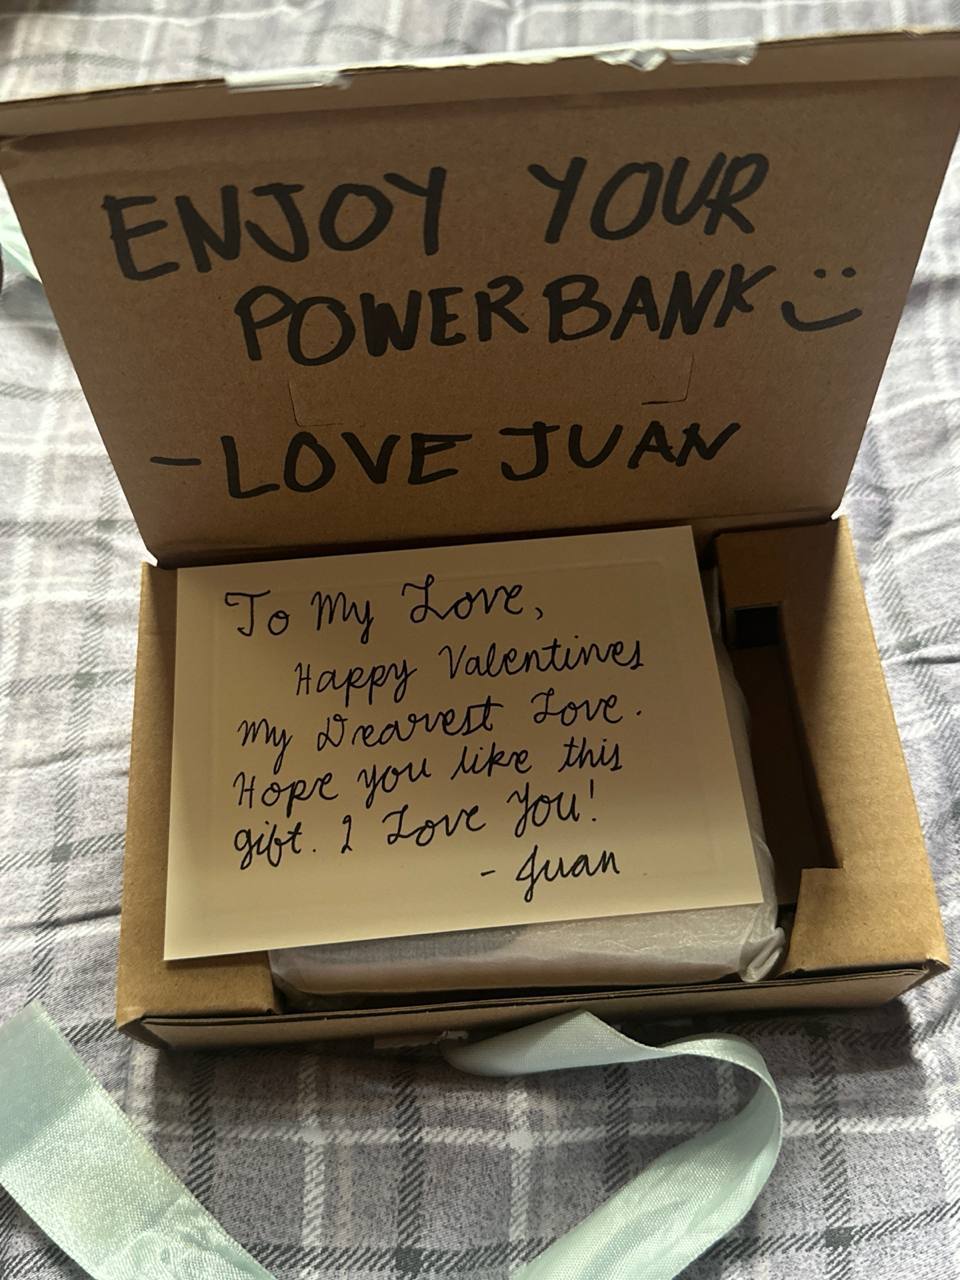 ENJOY YOUR
POWERBANK
- LOVE JUAN
To My Love,
Happy Valentines
My Dearest Love.
Hope you like this
gift. I Love You!
- Juan